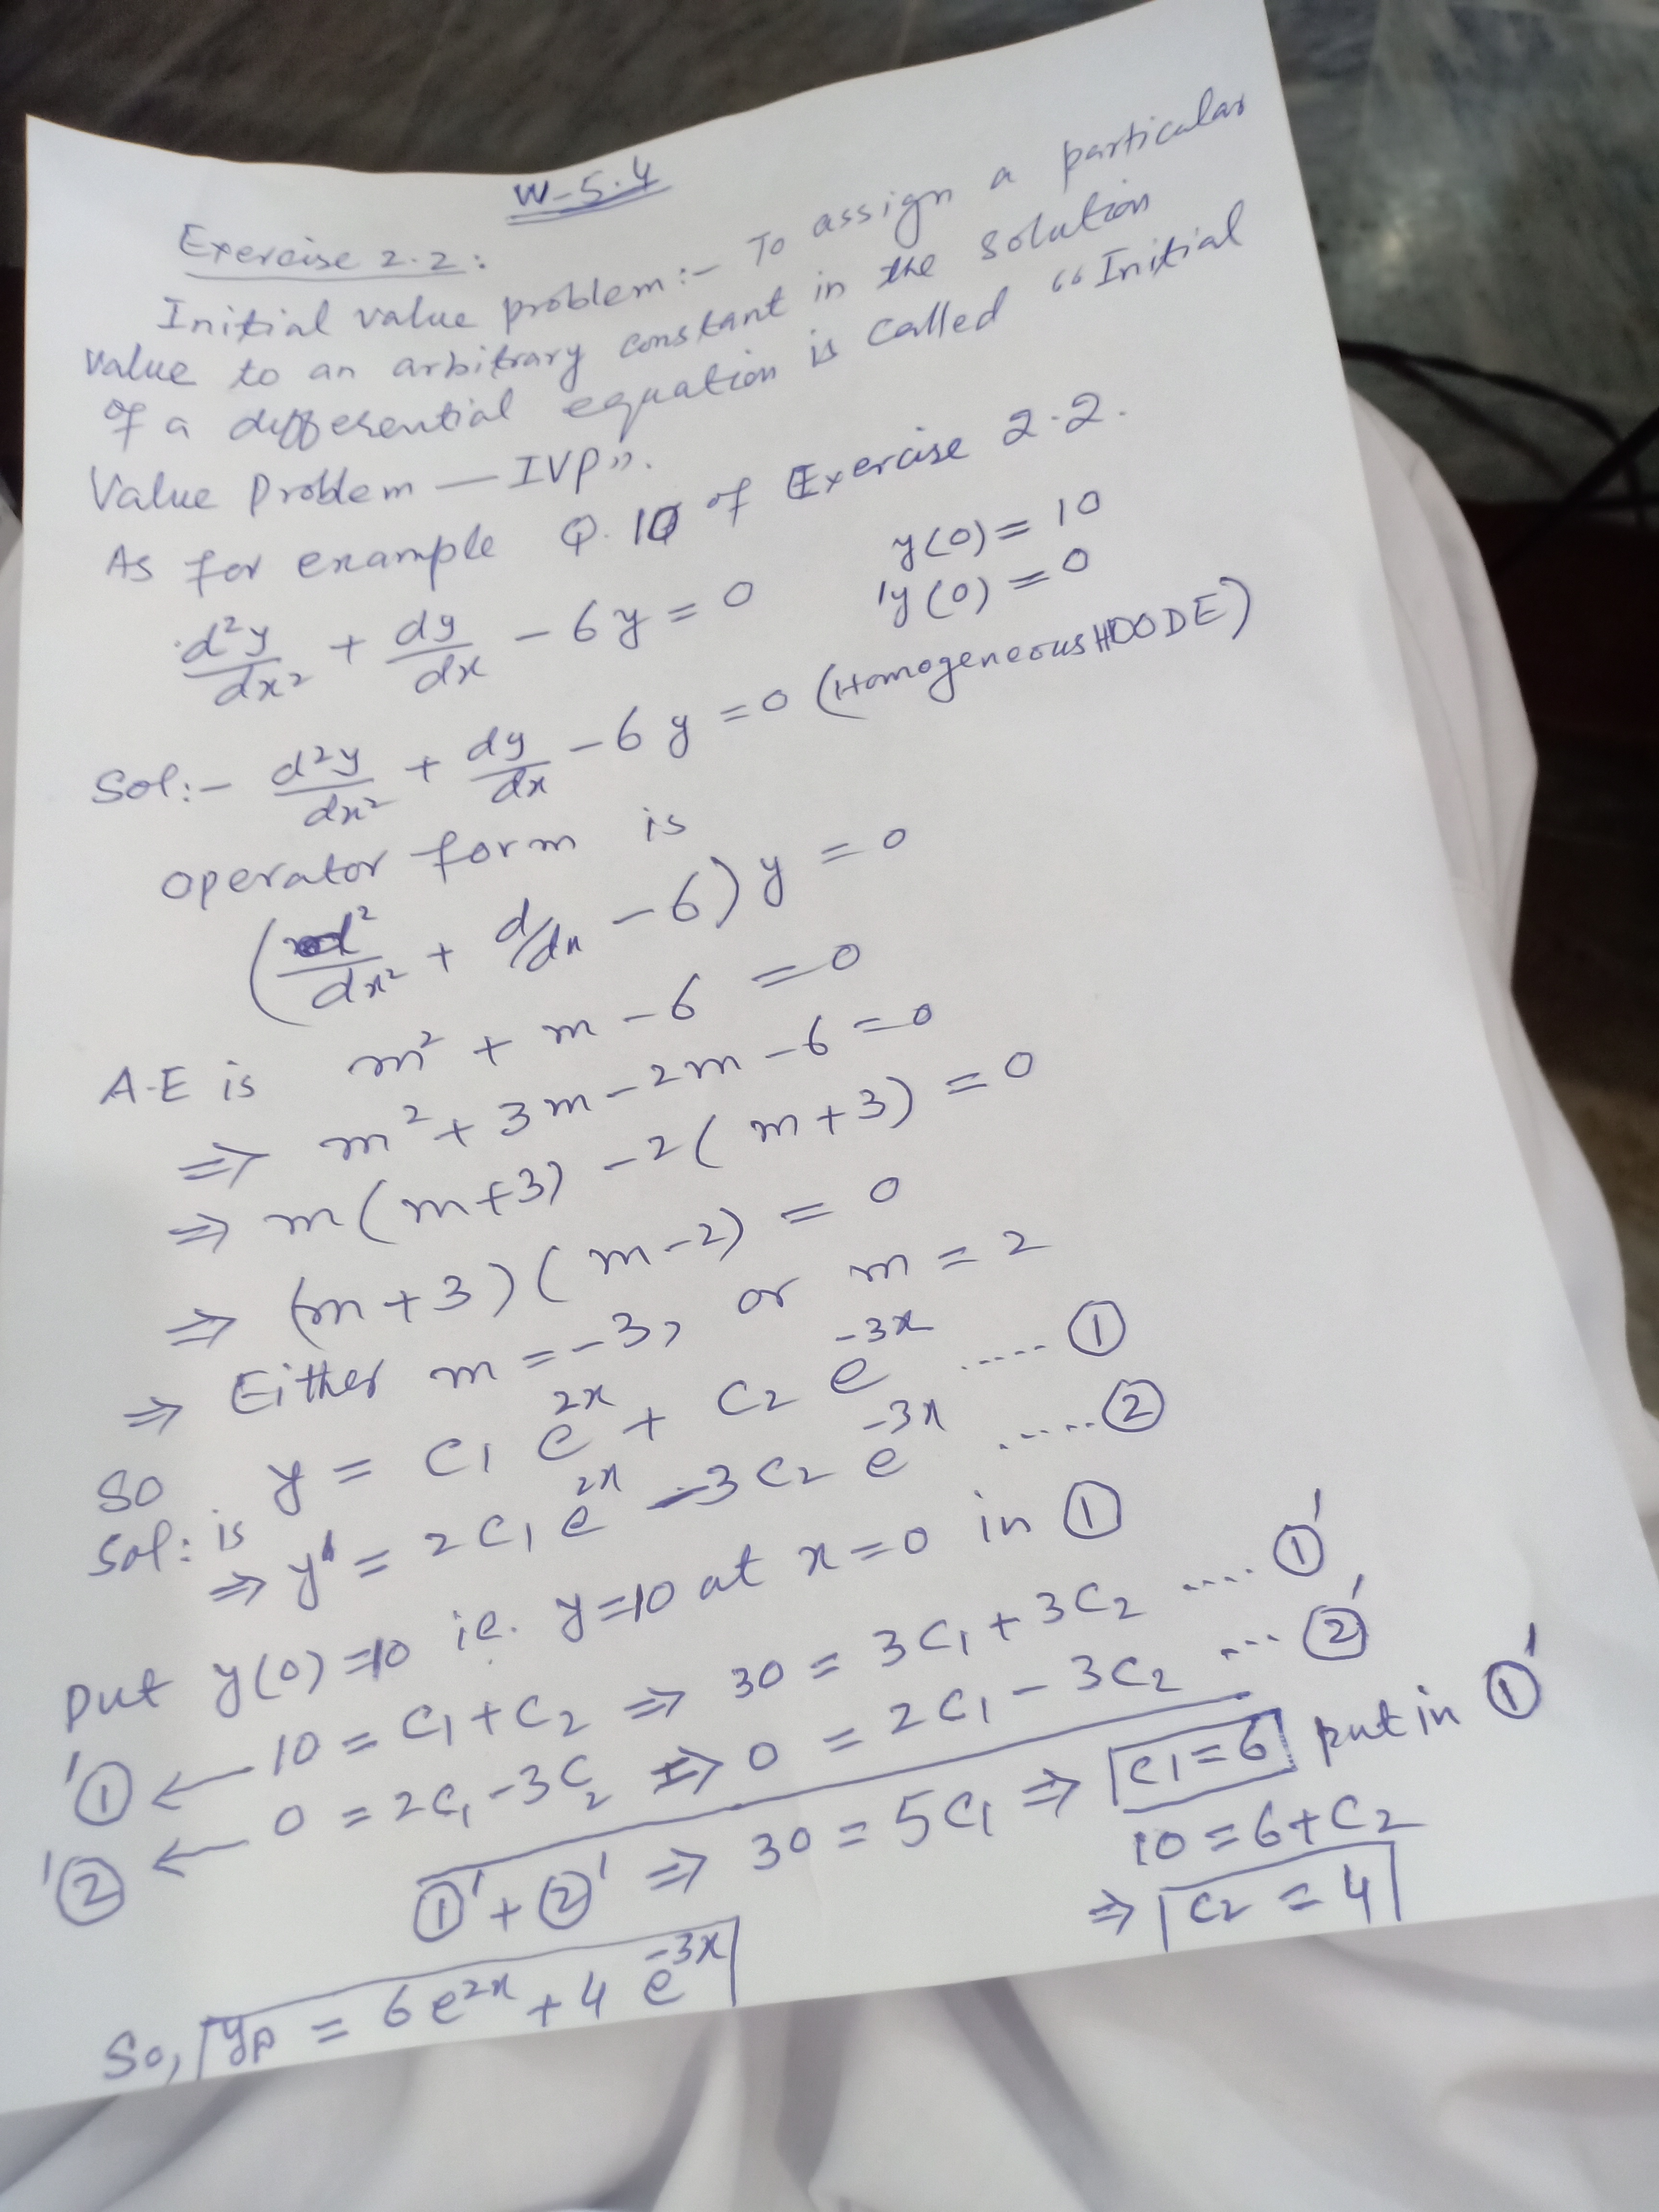 W-5.4
Exercise 2.2:
Initial value problem:- To assign a particular
value to an arbitrary constant in the solution
of a differential equation is called "Initial
Value Problem — IVP".
As for example Q.10 of Exercise 2.2.
d²y/dx² + dy/dx - 6y = 0 y(0) = 10
'y(0) = 0
Sol:- d²y/dx² + dy/dx - 6y = 0 (Homogeneous HOODE)
operator form is
(d²/dx² + d/dx - 6) y = 0
A.E is m² + m - 6 = 0
⇒ m² + 3m - 2m - 6 = 0
⇒ m(m+3) - 2(m+3) = 0
⇒ (m+3)(m-2) = 0
⇒ Either m = -3, or m = 2
So y = C1 e^2x + C2 e^-3x ..... ①
Sol: is
⇒ y' = 2C1 e^2x - 3C2 e^-3x ..... ②
Put y(0)=10 ie. y=10 at x=0 in ①
'① ← 10 = C1 + C2 ⇒ 30 = 3C1 + 3C2 ..... ①'
'② ← 0 = 2C1 - 3C2 ⇒ 0 = 2C1 - 3C2 ... ②'
①' + ②' ⇒ 30 = 5C1 ⇒ C1 = 6 put in ①'
10 = 6 + C2
⇒ C2 = 4
So, yp = 6e^2x + 4e^-3x